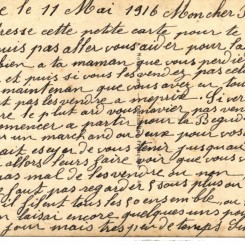 e le 11 Mai 1916 Mon cher
resse cette petite carte pour te
uis pas aller vous aider pour la
bien a la maman que vous perdie
et puis si vous les vendez pas cela
maintenan que vous aviez un tout
t pas les vendre a meprix. Si vou
re le peut au voudrais bien
mencer a partir pour la
un marchand ou deux pour vous
ait essayer de vous tenir jusqua
allors leurs faire voir que vous
pas mal de les vendre ou non
faut pas regarder 5 sous plus ou
il filent tous les 50 ensemble, ou
en laisai encore quelques uns pou
jour mais tres peu de temps